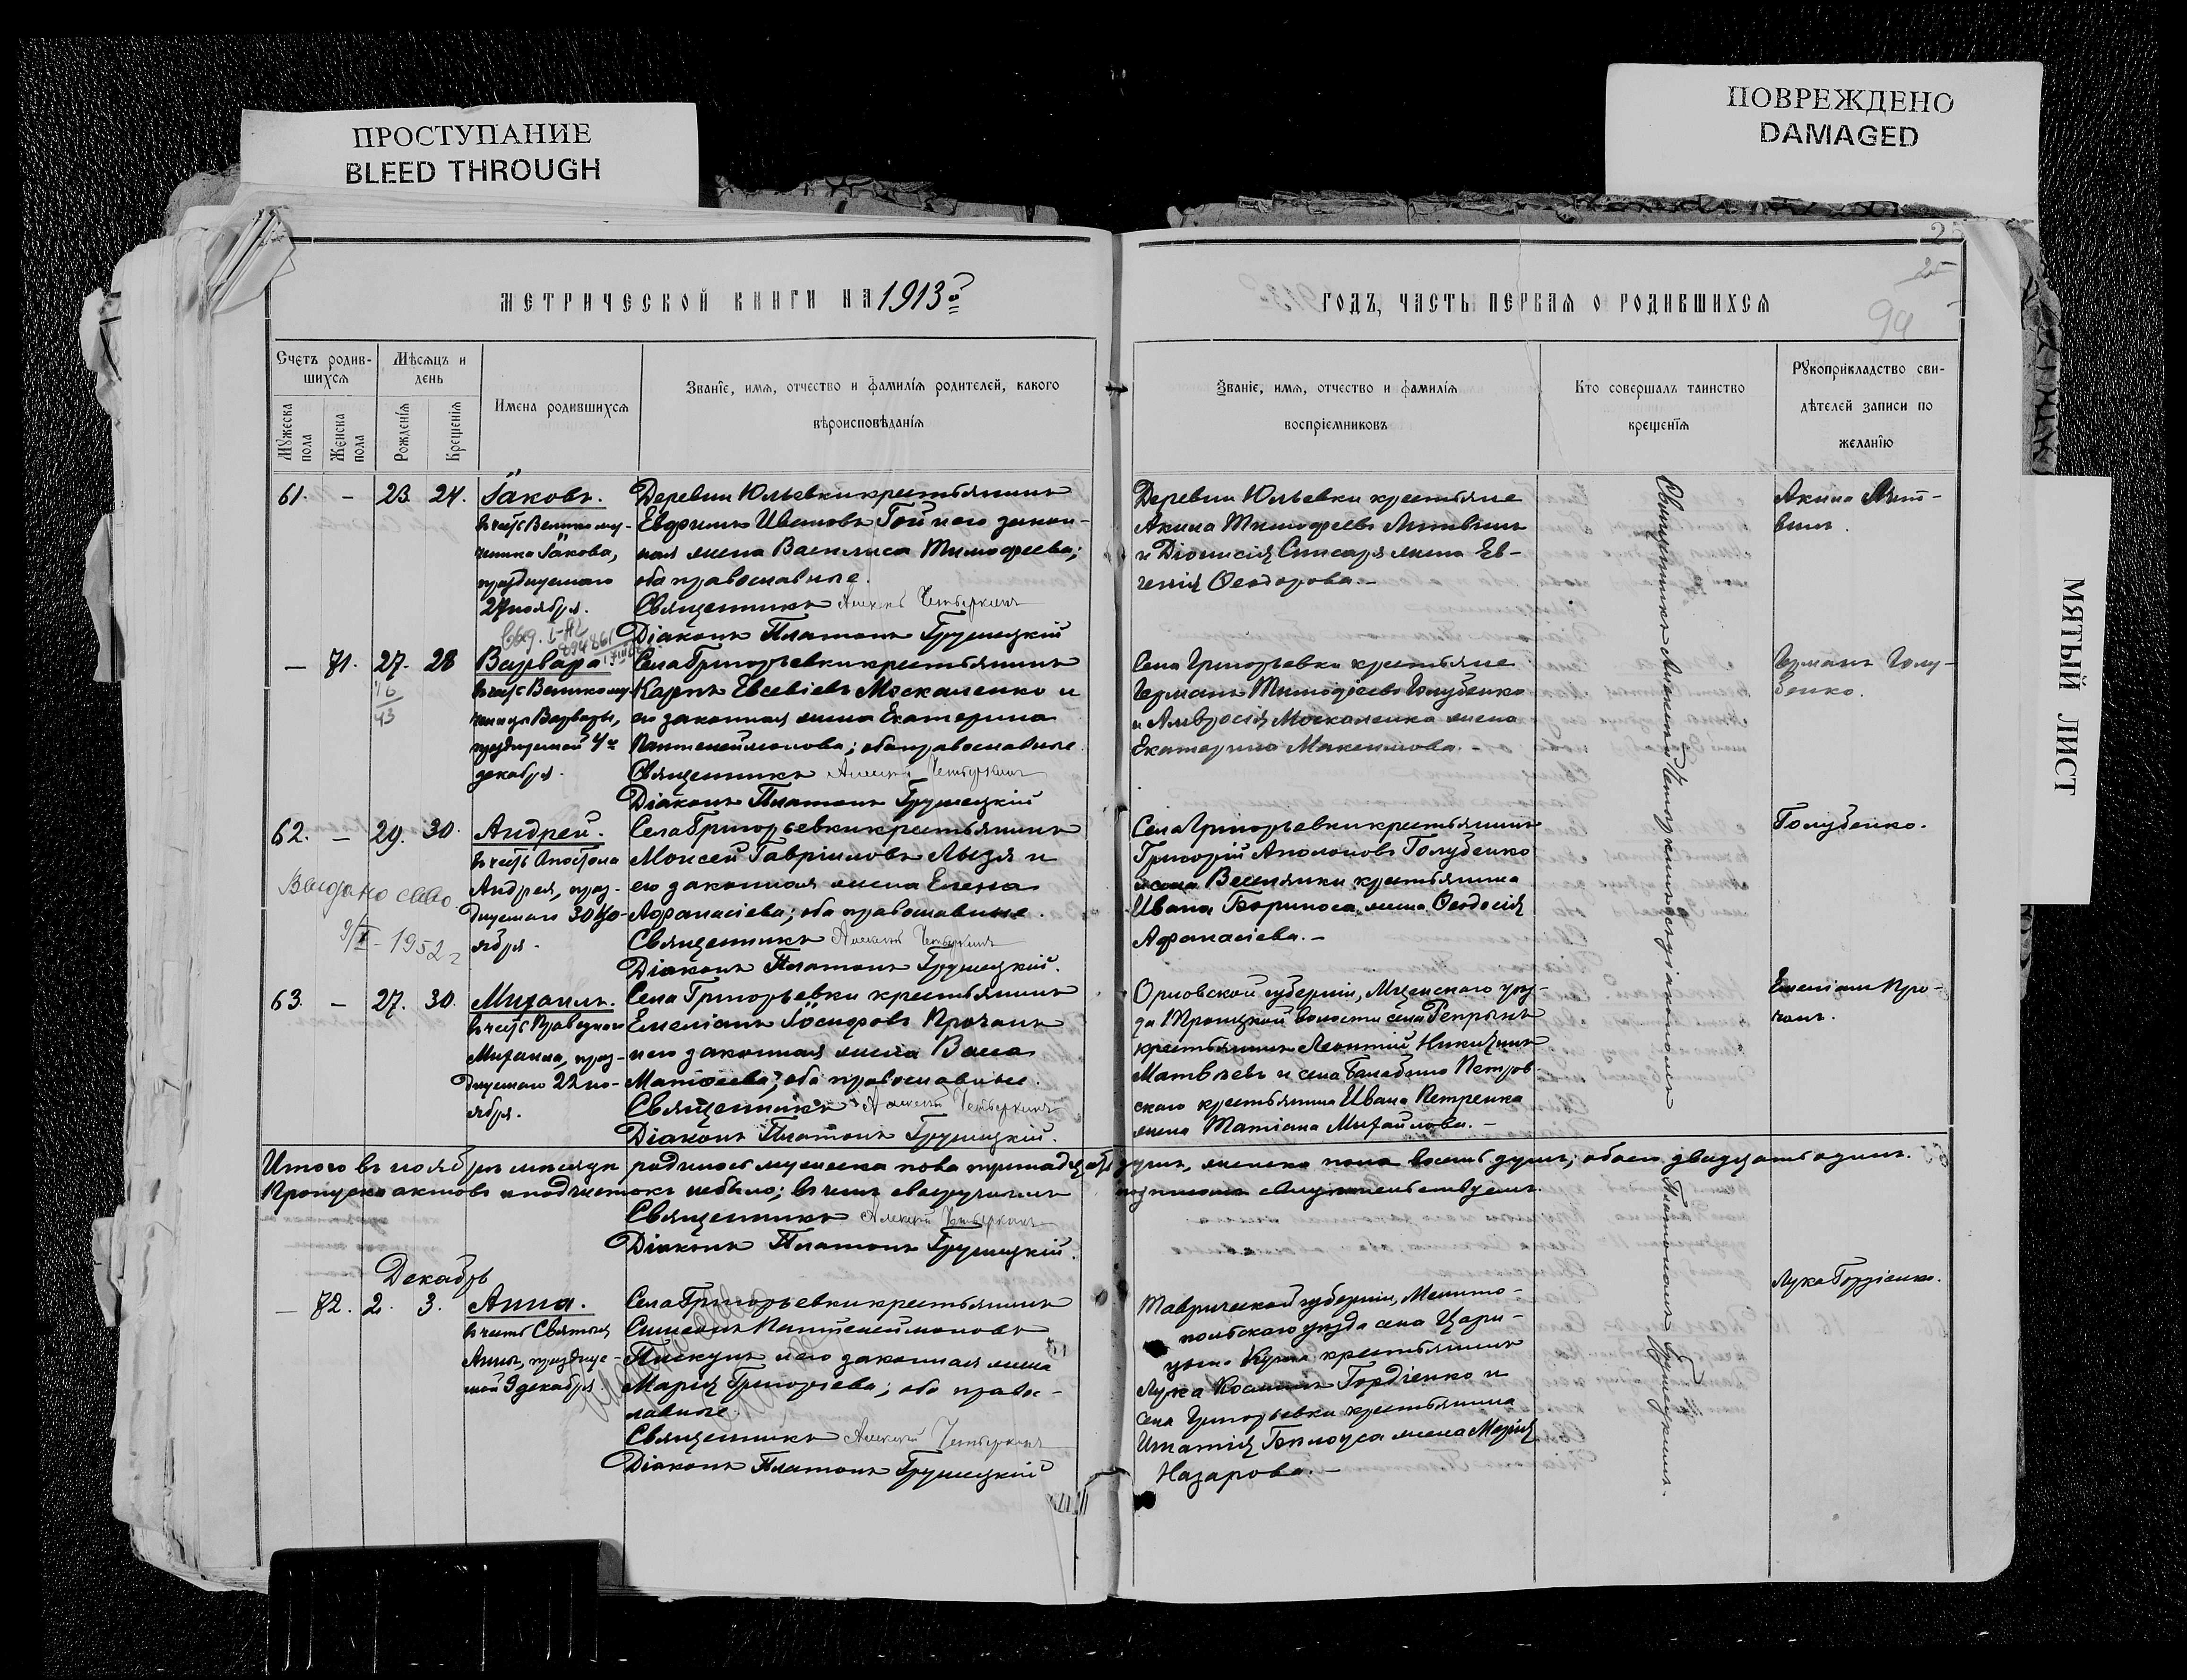 ПРОСТУПАНИЕ
BLEED THROUGH
ПОВРЕЖДЕНО
DAMAGED
МЯТЫЙ ЛИСТ
25
94
МЕТРИЧЕСКОЙ КНИГИ НА 1913й
ГОДЪ, ЧАСТЬ ПЕРВАЯ О РОДИВШИХСЯ
Счетъ родив-
шихся
Мужеска
пола
Женска
пола
Мѣсяцъ и
день
Рожденія
Крещенія
Имена родившихся
Званіе, имя, отчество и фамилія родителей, какого
вѣроисповѣданія
Званіе, имя, отчество и фамилія
воспріемниковъ
Кто совершалъ таинство
крещенія
Рукоприкладство сви-
дѣтелей записи по
желанію
61. – 23. 24. Іаковъ.
въ честь Великому-
ченика Іакова,
празднуемаго
27 ноября.
Деревни Юльевки крестьянинъ
Евфимъ Ивановъ его закон-
ная жена Василиса Тимофеева;
оба православные.
Священникъ Алексей Четверкинъ
Діаконъ Платонъ Грушецкій
Деревни Юльевки крестьяне
Акила Тимофеевъ Литвинъ
и Діонисія жена Ев-
генія Ѳеодорова. –
Акила Лит-
винъ.
– 71. 27. 28 Варвара
въ честь Великому-
ченицы Варвары,
празднуемой 4го
декабря.
Села Григорьевки крестьянинъ
Карпъ Евсевіевъ Москаленко и
его законная жена Екатерина
Пантелеймонова; оба православные
Священникъ Алексей Четверкинъ
Діаконъ Платонъ Грушецкій
Села Григорьевки крестьяне
Германъ Тимофеевъ Голубенко
и Амвросія Москаленка жена
Екатерина Максимова. –
Германъ Голу-
бенко.
62. – 29. 30. Андрей.
въ честь Апостола
Андрея, праз-
днуемаго 30 но-
ября.
Выдано свид.
1952 г
Села Григорьевки крестьянинъ
Моисей Гавріиловъ Лызя и
его законная жена Елена
Афанасіева; оба православные.
Священникъ Алексей Четверкинъ
Діаконъ Платонъ Грушецкій.
Села Григорьевки крестьянинъ
Григорій Голубенко
и села Веселянки крестьянина
Ивана жена Ѳеодосія
Афанасіева. –
Голубенко.
63. – 27. 30. Михаилъ.
въ честь Праведнаго
Михаила, праз-
днуемаго 22 но-
ября.
Села Григорьевки крестьянинъ
Емеліанъ Іосифовъ Прочанъ
и его законная жена Васса
Матѳеева; оба православные.
Священникъ Алексей Четверкинъ
Діаконъ Платонъ Грушецкій.
Орловской губерніи, Мценскаго уѣз-
да Троицкой волости села
крестьянинъ Леонтій
Матвѣевъ и села Балабино Петров-
скаго крестьянина Ивана Петренка
жена Татіана Михайлова. –
Емеліанъ Про-
чанъ.
Итого въ ноябрѣ мѣсяцѣ родилось мужеска пола тринадцать душъ, женска пола восемь душъ; обоего двадцать одинъ.
Пропуска актовъ и подчистокъ небыло; въ чемъ своеручнымъ подписомъ свидѣтельствуемъ.
Священникъ Алексей Четверкинъ
Діаконъ Платонъ Грушецкій.
Декабрь
– 72. 2. 3. Анна.
въ честь Святыя
Анны, празднуе-
мой 9 декабря.
Села Григорьевки крестьянинъ
Симеонъ Пантелеймоновъ
Пискунъ и его законная жена
Марія Григорьева; оба право-
славные.
Священникъ Алексей Четверкинъ
Діаконъ Платонъ Грушецкій
Таврической губерніи, Мелито-
польскаго уѣзда села Цари-
цына Кута крестьянинъ
Лука Косминъ Гордіенко и
села Григорьевки крестьянина
Игнатія Бѣлоуса жена Марія
Назарова. –
Лука Гордіенко.
Священникъ Алексей Четверкинъ съ діакономъ
Платономъ Грушецкимъ.